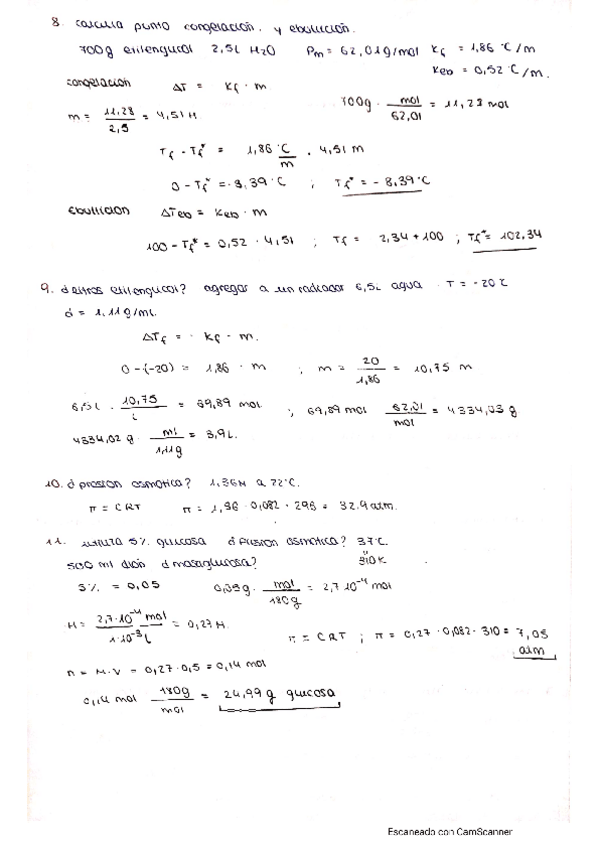 8. calcula punto congelación. y ebullición.
700g etilenglicol 2,5L H2O Pm = 62,01g/mol Kf = 1,86 °C/m
Keb = 0,52 °C/m.
congelación ΔT = Kf · m
700g · mol/62,01 = 11,28 mol
m = 11,28/2,5 = 4,51 M
Tf - Tf* = 1,86 °C/m · 4,51 m
0 - Tf* = 8,39 °C ; Tf* = -8,39°C
Ebullición ΔTeb = Keb · m
100 - Tf* = 0,52 · 4,51 ; Tf = 2,34 + 100 ; Tf* = 102,34
9. d litros etilenglicol? agregar a un radiador 6,5L agua T = -20°C
d = 1,11g/mL
ΔTf = · Kf · m.
0-(-20) = 1,86 · m ; m = 20/1,86 = 10,75 m
6,5L · 10,75/L = 69,89 mol ; 69,89 mol 62,01/mol = 4334,03 g
4334,02 g · ml/1,11g = 3,9L.
10. d presion osmotica? 1,36M a 22°C.
π = CRT π = 1,36 · 0,082 · 296 = 32.9 atm.
11. 5% glucosa d Presion osmotica? 37°C.
310K
500 ml d masa glucosa?
5% = 0,05 0,05g · mol/180g = 2,7·10⁻⁴ mol
M = 2,7·10⁻⁴ mol/1·10⁻³ L = 0,27 M.
π = CRT ; π = 0,27 · 0,082 · 310 = 7,05
atm
n = M·V = 0,27 · 0,5 = 0,14 mol
0,14 mol 180g/mol = 24,99 g glucosa
Escaneado con CamScanner